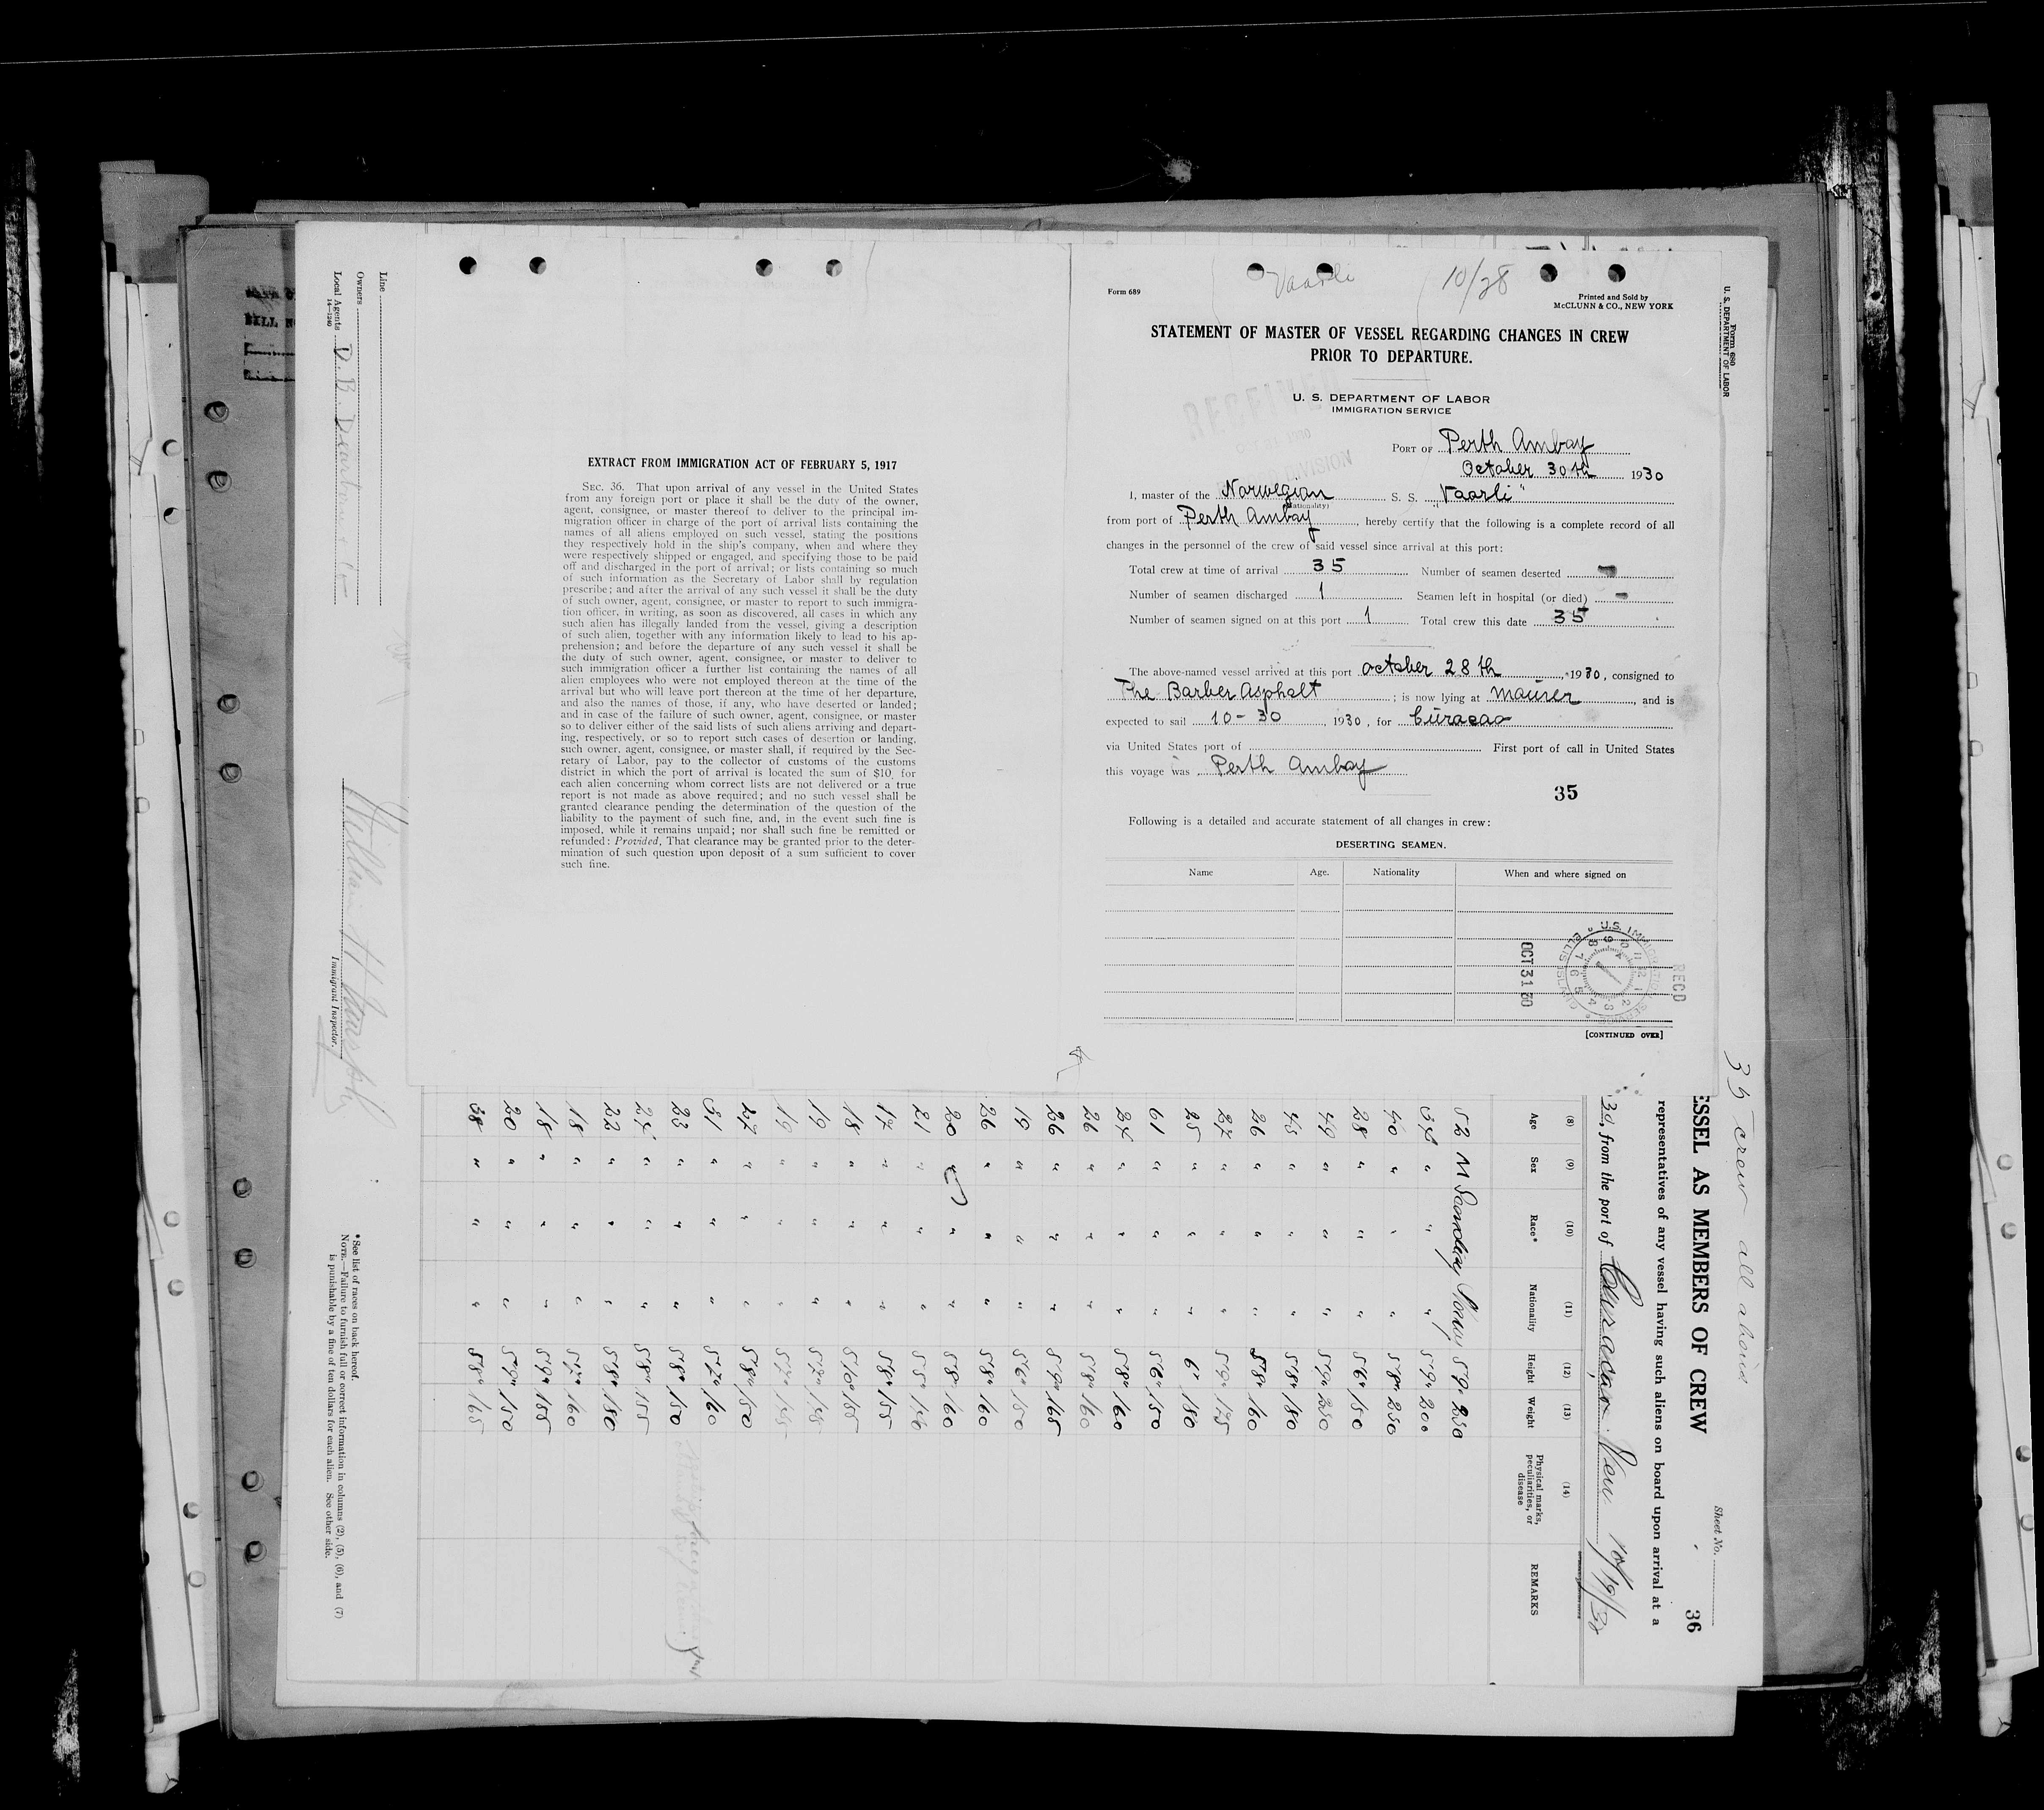 Vaarli
10/28
Form 689
Printed and Sold by
McCLUNN & CO., NEW YORK
STATEMENT OF MASTER OF VESSEL REGARDING CHANGES IN CREW
PRIOR TO DEPARTURE.
U. S. DEPARTMENT OF LABOR
IMMIGRATION SERVICE
RECEIVED
DIVISION
PORT OF Perth Amboy
October 30th 1930
I, master of the Norwegian S. S. "Vaarli"
(Nationality)
from port of Perth Amboy, hereby certify that the following is a complete record of all
changes in the personnel of the crew of said vessel since arrival at this port:
Total crew at time of arrival 35 Number of seamen deserted -
Number of seamen discharged 1 Seamen left in hospital (or died) -
Number of seamen signed on at this port 1 Total crew this date 35
The above-named vessel arrived at this port october 28th, 1930, consigned to
The Barber Asphalt; is now lying at maurer, and is
expected to sail 10-30, 1930, for Curacao
via United States port of First port of call in United States
this voyage was Perth Amboy
35
Following is a detailed and accurate statement of all changes in crew:
DESERTING SEAMEN.
Name Age. Nationality When and where signed on
OCT 31 30
U.S. IMMIGRATION SERVICE ELLIS ISLAND
REC'D
[CONTINUED OVER]
EXTRACT FROM IMMIGRATION ACT OF FEBRUARY 5, 1917
SEC. 36. That upon arrival of any vessel in the United States
from any foreign port or place it shall be the duty of the owner,
agent, consignee, or master thereof to deliver to the principal im-
migration officer in charge of the port of arrival lists containing the
names of all aliens employed on such vessel, stating the positions
they respectively hold in the ship's company, when and where they
were respectively shipped or engaged, and specifying those to be paid
off and discharged in the port of arrival; or lists containing so much
of such information as the Secretary of Labor shall by regulation
prescribe; and after the arrival of any such vessel it shall be the duty
of such owner, agent, consignee, or master to report to such immigra-
tion officer, in writing, as soon as discovered, all cases in which any
such alien has illegally landed from the vessel, giving a description
of such alien, together with any information likely to lead to his ap-
prehension; and before the departure of any such vessel it shall be
the duty of such owner, agent, consignee, or master to deliver to
such immigration officer a further list containing the names of all
alien employees who were not employed thereon at the time of the
arrival but who will leave port thereon at the time of her departure,
and also the names of those, if any, who have deserted or landed;
and in case of the failure of such owner, agent, consignee, or master
so to deliver either of the said lists of such aliens arriving and depart-
ing, respectively, or so to report such cases of desertion or landing,
such owner, agent, consignee, or master shall, if required by the Sec-
retary of Labor, pay to the collector of customs of the customs
district in which the port of arrival is located the sum of $10 for
each alien concerning whom correct lists are not delivered or a true
report is not made as above required; and no such vessel shall be
granted clearance pending the determination of the question of the
liability to the payment of such fine, and, in the event such fine is
imposed, while it remains unpaid; nor shall such fine be remitted or
refunded: Provided, That clearance may be granted prior to the deter-
mination of such question upon deposit of a sum sufficient to cover
such fine.
Form 680
U. S. DEPARTMENT OF LABOR
35 crew all aboard
Sheet No.
36
ESSEL AS MEMBERS OF CREW
representatives of any vessel having such aliens on board upon arrival at a
30, from the port of Curacao 10/19/30
(8) (9) (10) (11) (12) (13) (14)
Age Sex Race* Nationality Height Weight Physical marks, peculiarities, or disease REMARKS
52 M Scandin Norway 59" 230
34 " " " 59" 200
40 " " " 58" 230
28 " " " 56" 150
49 " " " 59" 230
43 " " " 58" 180
26 " " " 58" 160
27 " " " 59" 175
25 " " " 6" 180
61 " " " 56" 150
24 " " " 58" 160
26 " " " 58" 160
26 " " " 59" 165
19 " " " 56" 150
26 " " " 58" 160
20 " " " 58" 160
21 " " " 55" 150
17 " " " 58" 155
18 " " " 510" 155
19 " " " 57"
19 " " " 57"
27 " " " 58" 150
31 " " " 57" 160
23 " " " 58" 150
24 " " " 58" 155
22 " " " 58" 180
18 " " " 57" 160
18 " " " 59" 155
20 " " " 59" 150
38 " " " 58" 165
Line
Owners
Local Agents D. B. Dearborn & Co
14-1240
William H.
Immigrant Inspector.
*See list of races on back hereof.
NOTE.—Failure to furnish full or correct information in columns (2), (5), (6), and (7)
is punishable by a fine of ten dollars for each alien. See other side.